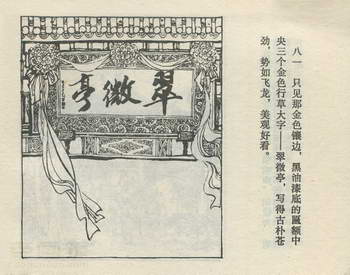 翠微亭
八一　只见那金色镶边，黑油漆底的匾额中
央三个金色行草大字——翠微亭，写得古朴苍
劲，势如飞龙，美观好看。